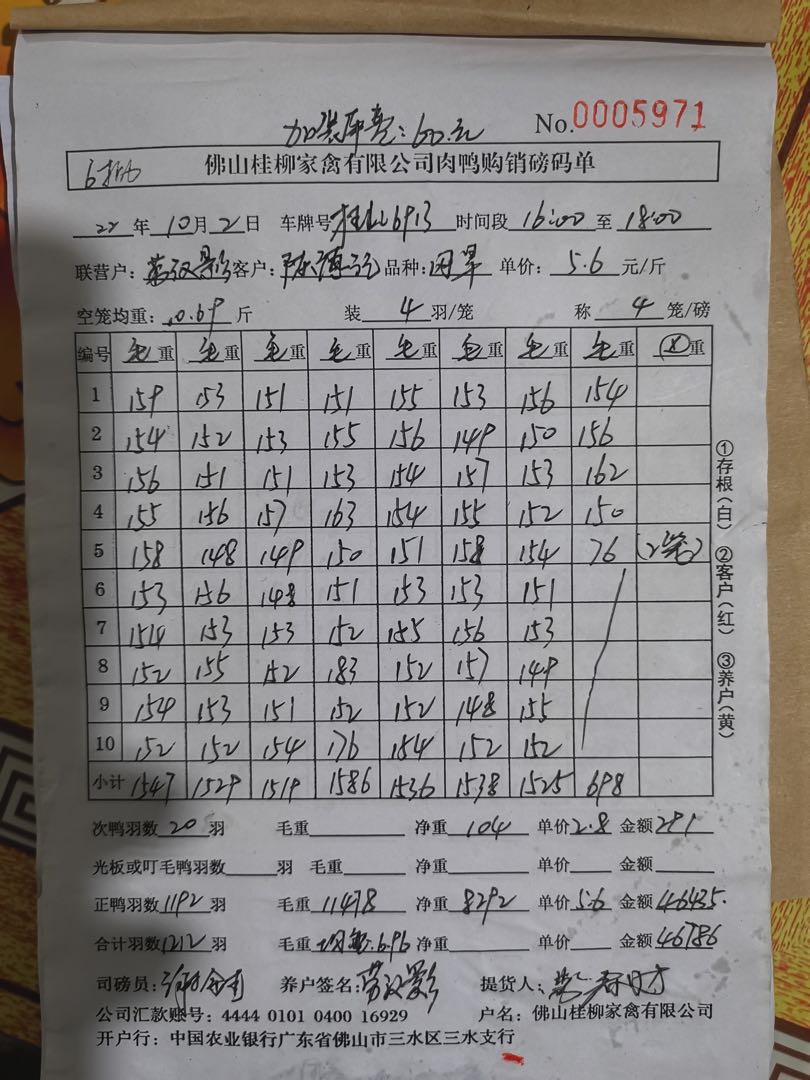 加装车费：60.元 No.0005971
佛山桂柳家禽有限公司肉鸭购销磅码单
22 年 10 月 2 日 车牌号 桂 6913 时间段 16:00 至 18:00
联营户： 客户： 品种： 单价： 5.6 元/斤
空笼均重： 10.69 斤 装 4 羽/笼 称 4 笼/磅
编号 毛重 毛重 毛重 毛重 毛重 毛重 毛重 毛重 重
1 159 153 151 151 155 153 156 154
2 154 152 153 155 156 149 150 156
3 156 151 151 153 154 157 153 162
4 155 156 157 163 154 155 152 150
5 158 148 149 150 151 158 154 76 (2笼)
6 153 156 148 151 153 153 151
7 154 153 153 152 155 156 153
8 152 155 152 183 152 157 149
9 154 153 151 152 152 148 155
10 152 152 154 176 154 152 152
小计 1547 1529 1519 1586 1536 1538 1525 698
①存根（白） ②客户（红） ③养户（黄）
次鸭羽数 20 羽 毛重 净重 104 单价 2.8 金额 291
光板或叮毛鸭羽数 羽 毛重 净重 单价 金额
正鸭羽数 1192 羽 毛重 11478 净重 8292 单价 5.6 金额 46435.
合计羽数 1212 羽 毛重 均重:6.96 净重 单价 金额 46786
司磅员： 养户签名： 提货人：
公司汇款账号：4444 0101 0400 16929 户名：佛山桂柳家禽有限公司
开户行：中国农业银行广东省佛山市三水区三水支行